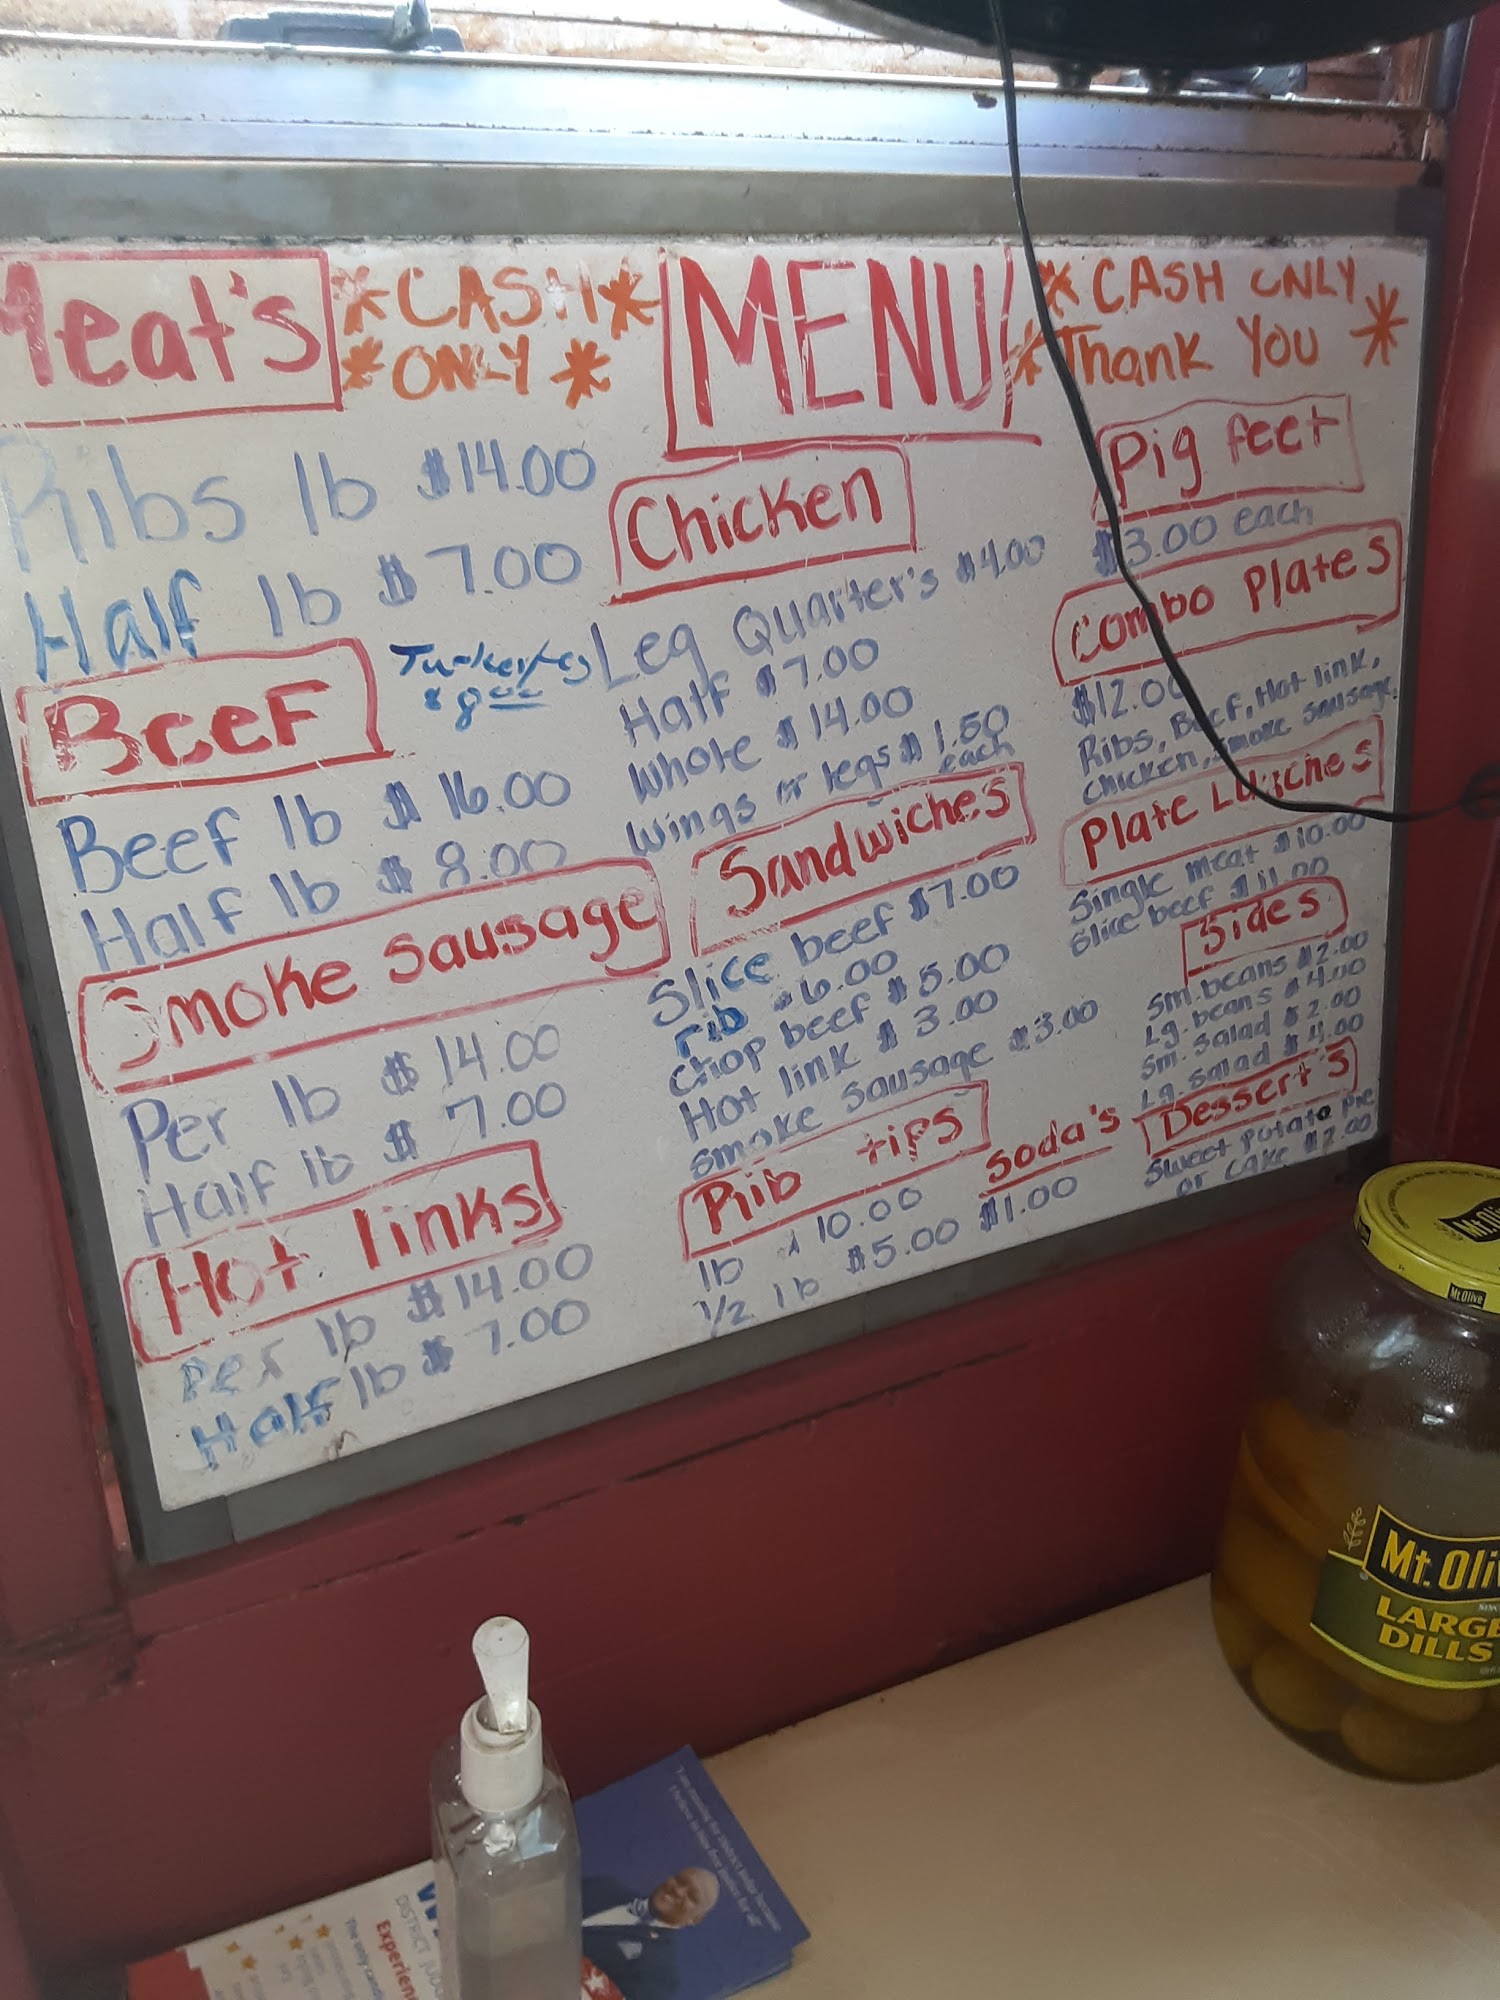 Meat's
*CASH*
*ONLY*
Ribs lb $14.00
Half lb $7.00
Beef
Turkey legs
$8.00
Beef lb $16.00
Half lb $8.00
Smoke sausage
Per lb $14.00
Half lb $7.00
Hot links
Per lb $14.00
Half lb $7.00
MENU
Chicken
Leg Quarter's $4.00
Half $7.00
Whole $14.00
Wings or legs $1.50
each
Sandwiches
Slice beef $7.00
rib $6.00
chop beef $5.00
Hot link $3.00
smoke sausage $3.00
Rib tips
lb $10.00
1/2 lb $5.00
Soda's
$1.00
* CASH ONLY
*Thank You *
Pig feet
$3.00 each
Combo Plates
$12.00
Ribs, Beef, Hot link,
chicken, smoke sausage.
Plate Lunches
Single meat $10.00
Slice beef $11.00
Sides
Sm. beans $2.00
Lg. beans $4.00
Sm. Salad $2.00
Lg. Salad $4.00
Dessert's
Sweet Potato Pie
or cake $2.00
Mt. Olive
Mt. Oliv
LARGE
DILLS
DISTRICT
Experien